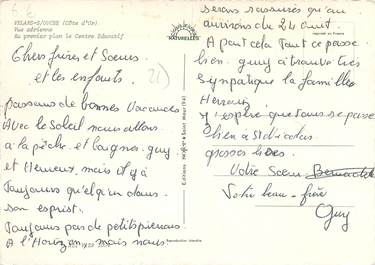 VELARS-S/OUCHE (Côte d'Or)
Vue aérienne
Au premier plan le Centre Educatif
NATURELLES
Chers frères et Soeurs
et les enfants.
passons de bonnes Vacances
Avec le Soleil nous allons
à la pêche, et baigner, guy
et Heureux, mais il y à
Toujours quelqu'un dans
son esprit.
Toujours pas de petits pierrais
A l'Horizon, mais nous
serons rassurés qu'au
environs du 24 Aout.
A part cela Tout ce passe
bien. guy à trouvé très
Sympatique la famille
j'espère que Tous ce passe
bien à St Nicolas
grosses bises.
Votre Soeur Bernadette
Votre beau-frère
Guy
Reproduction interdite